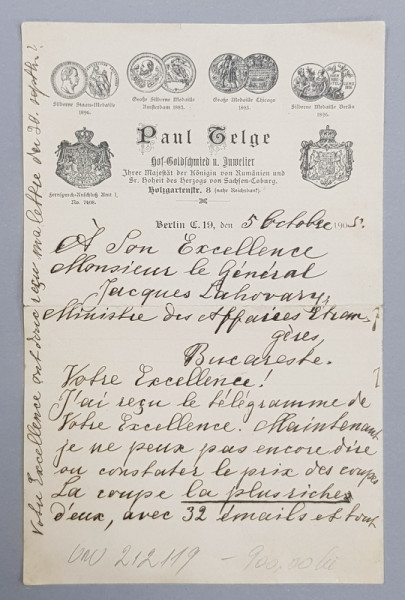 Silberne Staats-Medaille
1896.
Große Silberne Medaille
Amsterdam 1883.
Große Medaille Chicago
1893.
Silberne Medaille Berlin
1896.
Paul Telge
Hof-Goldschmied u. Juwelier
Ihrer Majestät der Königin von Rumänien und
Sr. Hoheit des Herzogs von Sachsen-Coburg.
Holzgartenstr. 8 (nahe Reichsbank).
Fernsprech-Anschluß Amt I,
No. 7406.
Berlin C. 19, den 5 Octobre 1905.
À Son Excellence
Monsieur le Général
Jacques Lahovary,
Ministre des Affaires Étran-
gères,
Bucareste.
Votre Excellence!
J'ai reçu le télégramme de
Votre Excellence. Maintenant
je ne peux pas encore dire
ou constater le prix des coupes
La coupe la plus riche
d'eux, avec 32 émails et tout
Votre Excellence ont donc reçu ma lettre du 30. septbr!
212119 - 900,00 lei